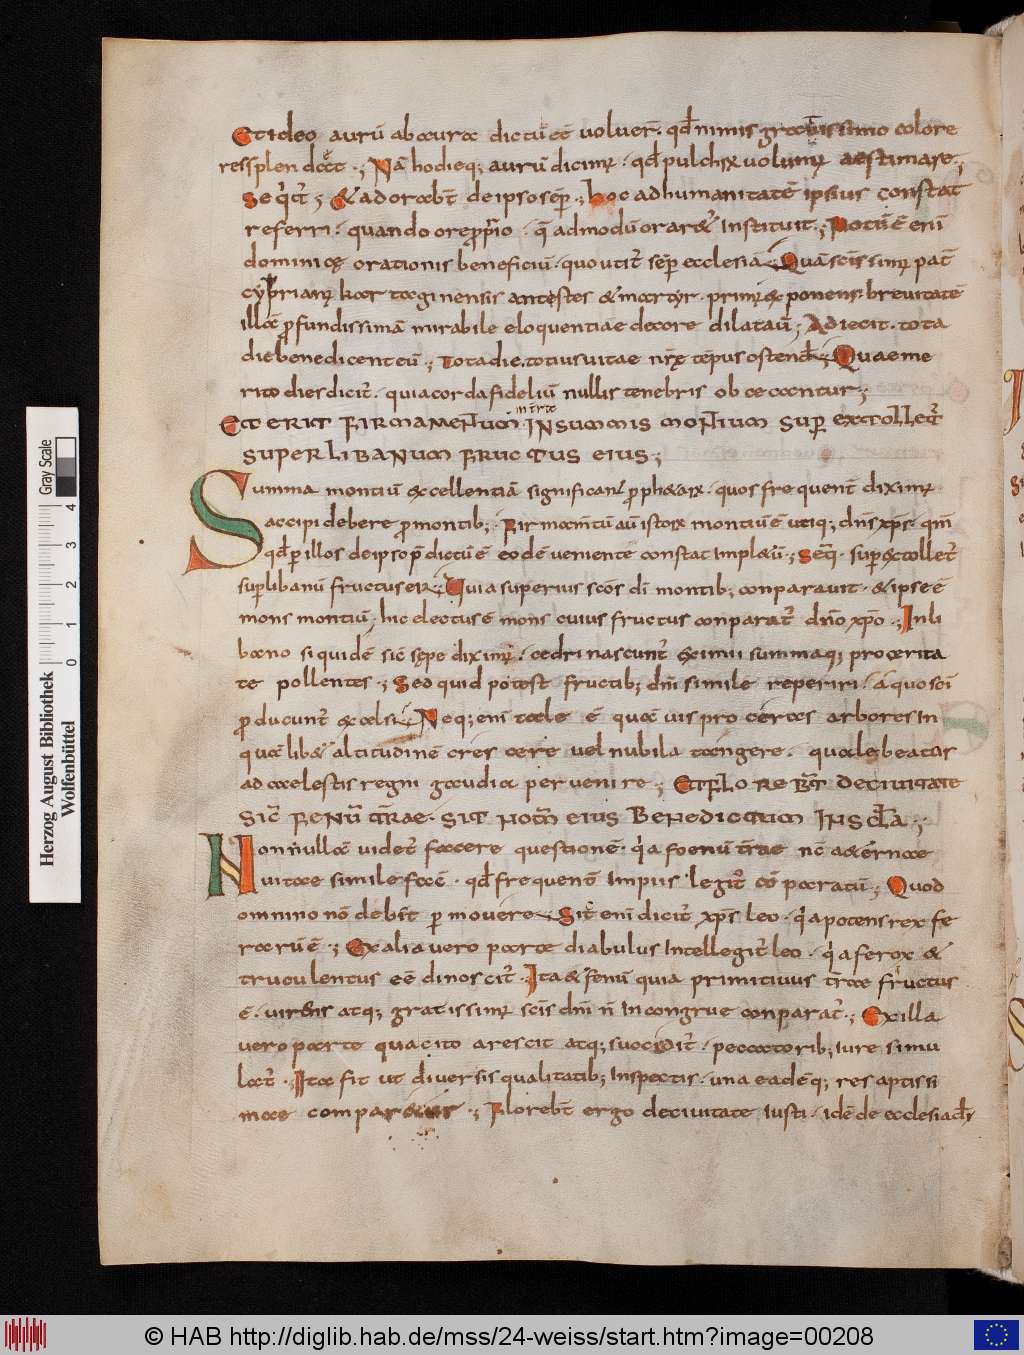 Et ideo aurū ab aura dictū ēē voluer̄. qđ nimis gratissimo colore
resplendeat.; Nā hodieq; aurū dicim̄. qđ pulchrx volum̄ aestimare.;
Seqt̄ ; & adorabt̄ de ipso sēp.; hoc ad humanitatē ipsius constat
referri. quando ore p̄prio. q̄ admodū oraret̄ Instituit.; Notū ē enī
dominicę orationis beneficiū. quo utit̄ sēp ecclesiā. Quā sc̄issim̄ pat̄
cyprian̄ kartaginensis antestes & martyr. prim̄ exponens. breuitatē
illā p̄fundissimā mirabile eloquentiae decore dilatauī; Adiecit. tota
die benedicent eū.; Tota die. totius vitae nr̄ę tēpus ostendit.; Quae me
rito dies dicit̄. quia corda fideliū nullis tenebris obcecantur.;
mirtæ
Et erit firmamentum in summis montium super extollet̄
super libanum fructus eius.;
Summa montiū excellentiā significant p̄ph&arx. quos frequent̄ dixim̄
accipi debere p̄ montib;. Firmamtū aū istorx montiū ē utiq; dn̄s xp̄s. qm̄
qđ p illos de ipso p̄dictū ē eodē veniente constat impl&ū.; Seq̄. superextollet̄
sup libanū fructus ei;. Quia superius sc̄os dī montib; conparavit. & ipse ē
mons montiū; hic dictus ē mons cuius fructus conparat̄ dn̄o xp̄o.; In li
bano siquidē sic̄ sępe dixim̄. cedri nascunt̄ eximii summaq; procerita
te pollentes.; Sed quid potest fructib; dn̄i simile reperiri. a quo sc̄i
p̄ducunt̄ excelsi. Neq; enī tale ē quā vis proceras arbores In
quālib& altitudinē crescere vel nubila tangere. quale beatas
ad caelestis regni gaudia pervenire.; Et florebt̄ de civitate
sic̄ fenū terrae. sit nom̄ eius benedictum in scl̄a.;
Non nullā videt̄ facere questionē. qia foenū terrae nē aeternae
vitae simile facē. qđ frequent̄ impiis legit̄ cōparatū.; Quod
omnino nō debēt permovere. Sic̄ enī dicit̄ xp̄s leo. qia potens rex fe
rarū ē.; Ex alia vero parte diabulus Intellegit̄ leo. qia ferox &
truculentus eē dinoscit̄. Ita & fenū quia primitivus terrae fructus
ē. virens atq; gratissim̄ sc̄is dn̄i n̄ Incongrue conparat̄.; Ex illa
vero parte qua cito arescit atq; succidit̄. peccatorib; iure simu
lat̄. Ita fit ut diversis qualitatib; Inspectis. una eadēq; res aptissi
mae comparetur.; Florebt̄ ergo de civitate iusti. idē de ecclesia dī
Gray Scale
0 1 2 3 4
Herzog August Bibliothek
Wolfenbüttel
© HAB http://diglib.hab.de/mss/24-weiss/start.htm?image=00208